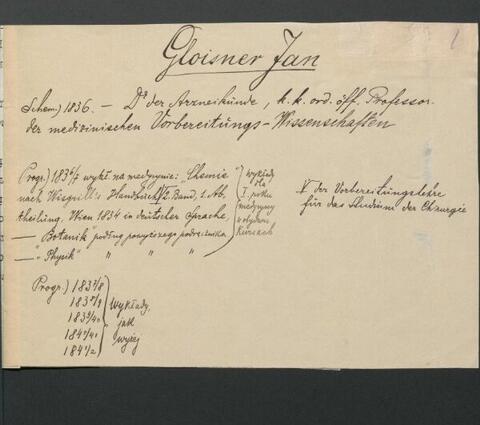 1
Gloisner Jan
Schem.) 1836. — Dr der Arzneikunde, k. k. ord. öff. Professor
der medizinischen Vorbereitungs-Wissenschaften
Progr.) 1836/7 wykł. na medycynie: "Chemie
nach Wisgrill's Handbuch 1/2 Band, 1. Ab,
theilung. Wien 1834 in deutscher Sprache,
— "Botanik" podług powyższego podręcznika
— "Physik" " " "
wykłady
dla
I. roku
medycyny
w obydwu
Kursach
der Vorbereitungslehre
für das Studium der Chirurgie
Progr.) 1837/8
1838/9
1839/40
1840/41
1841/2
Wykłady,
jak
wyżej